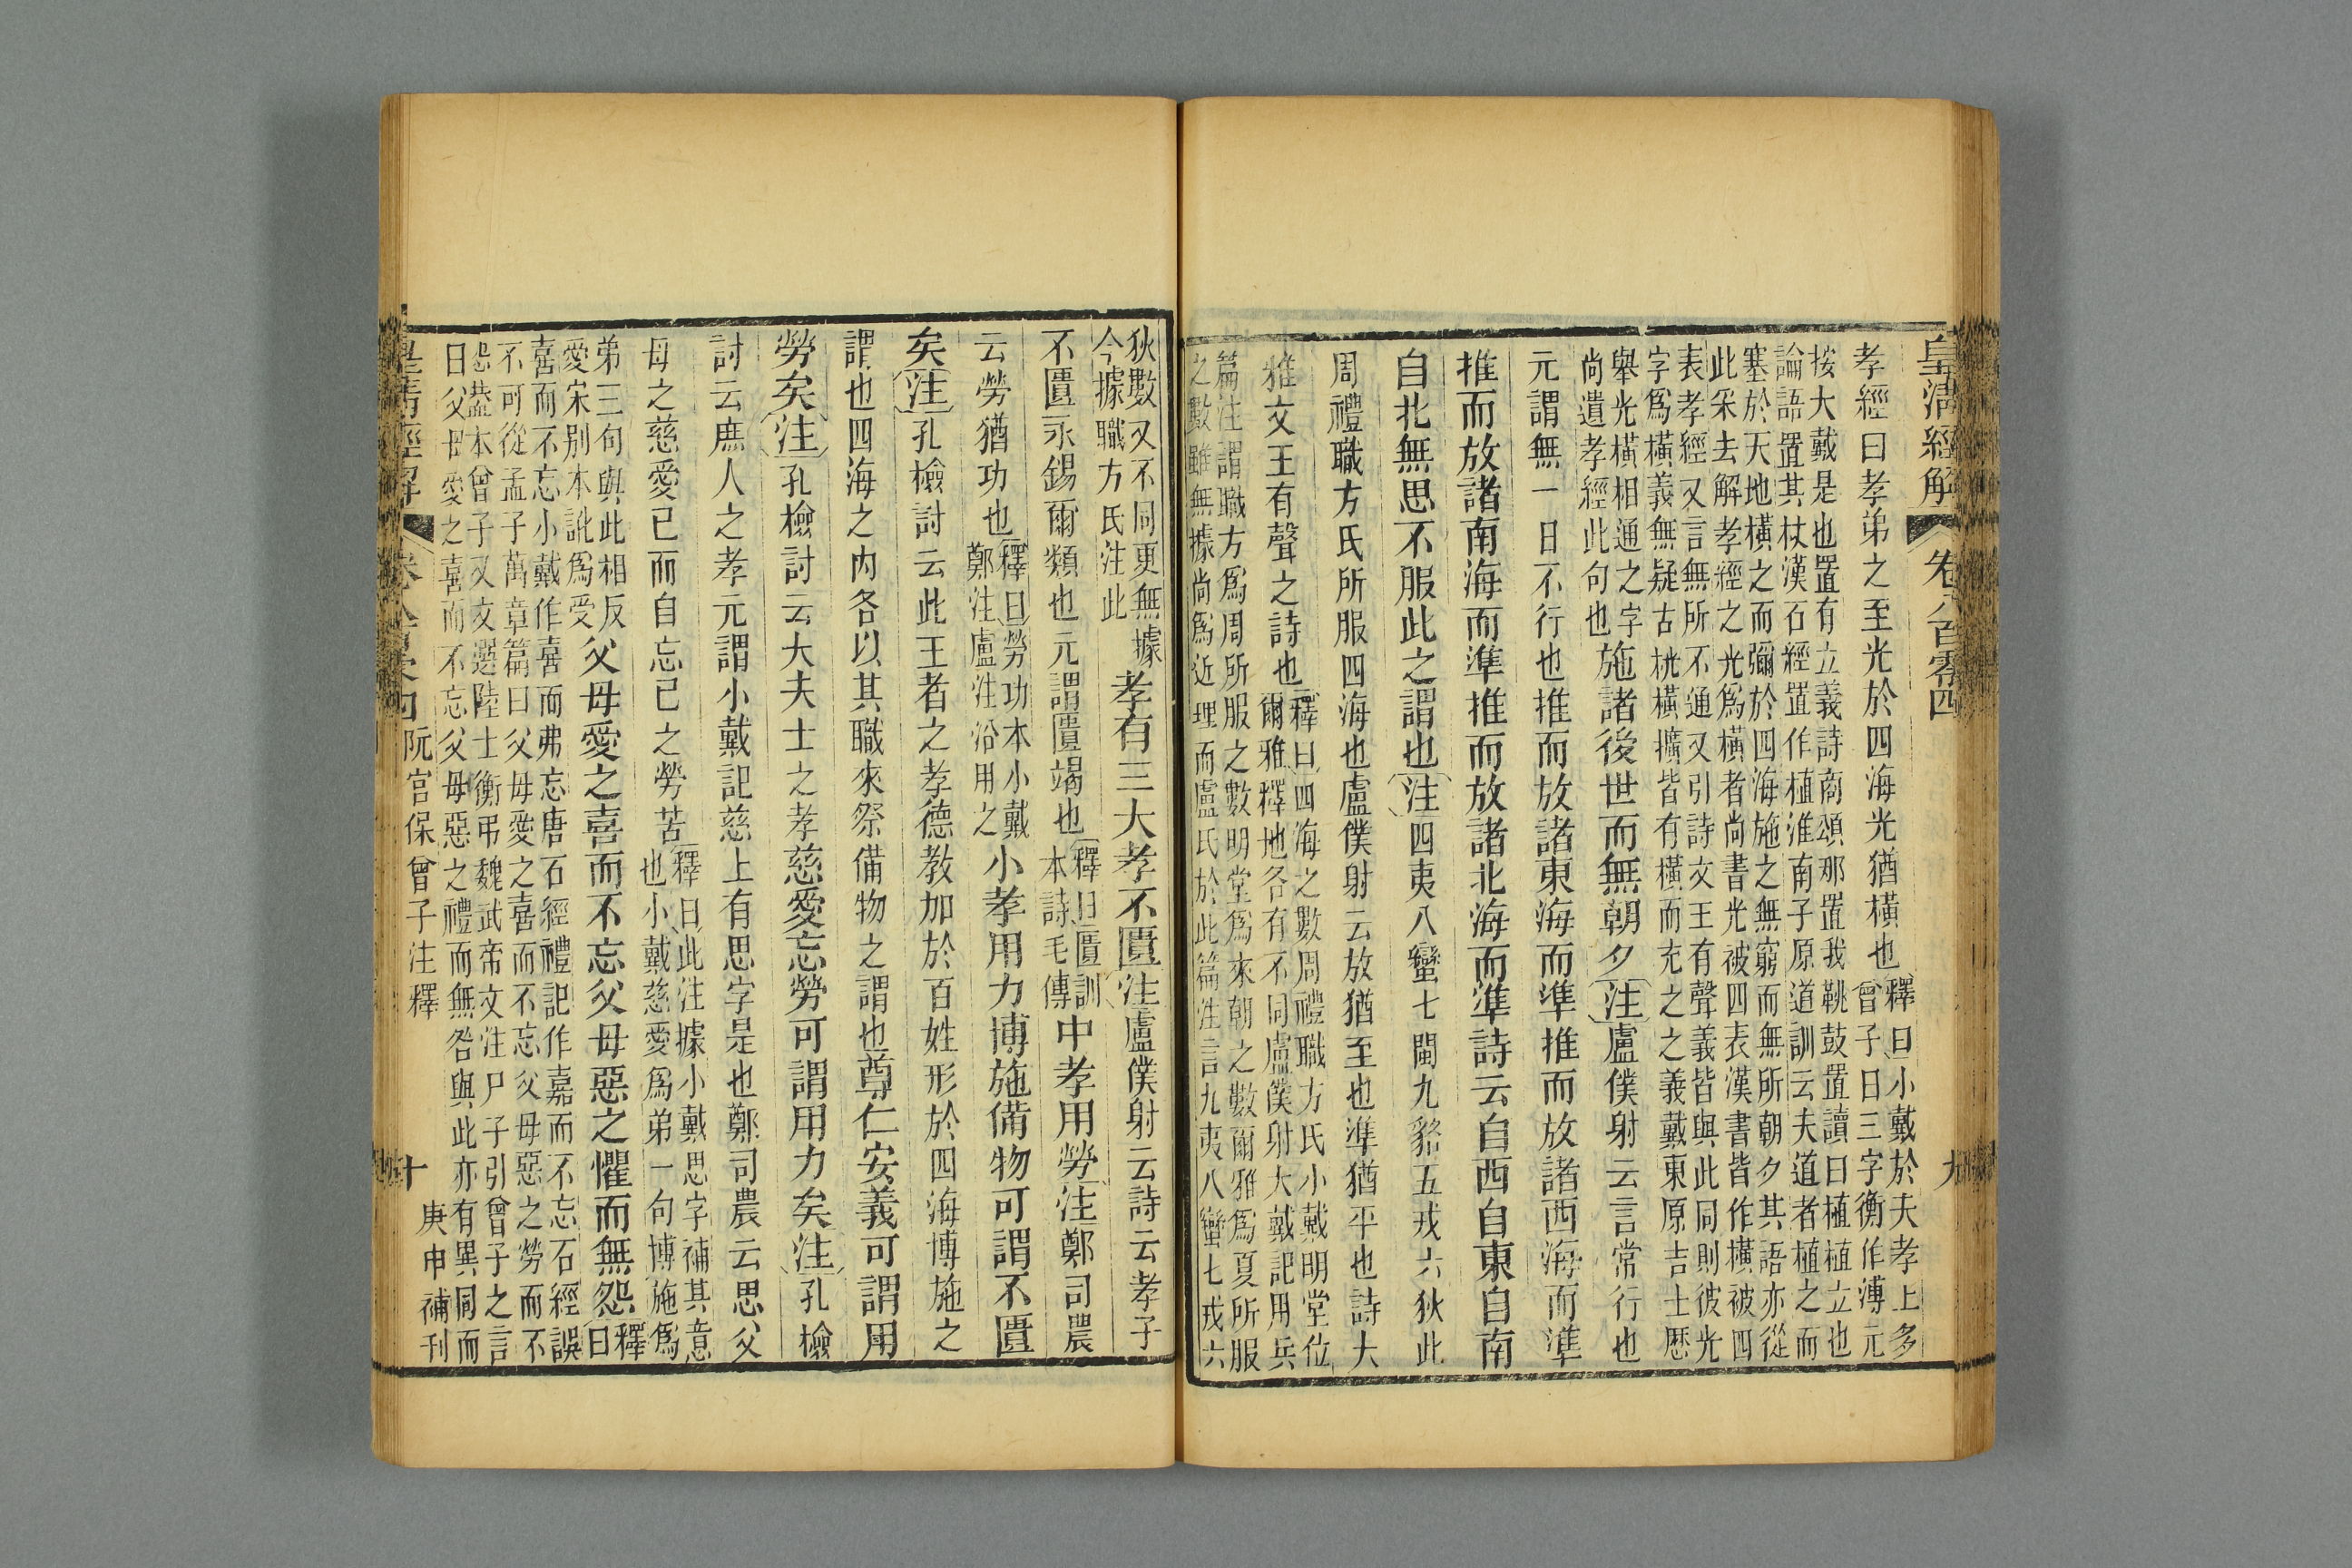 皇清經解 卷八百零四 九
孝經曰孝弟之至光於四海光猶橫也釋曰小戴於夫孝上多
曾子曰三字衡作溥元
按大戴是也置有立義詩商頌那置我鞉鼓置讀曰植植立也
論語置其杖漢石經置作植淮南子原道訓云夫道者植之而
塞於天地橫之而彌於四海施之無窮而無所朝夕其語亦從
此采去解孝經之光爲橫者尚書光被四表漢書皆作橫被四
表孝經又言無所不通又引詩文王有聲義皆與此同則彼光
字爲橫義無疑古桄橫擴皆有橫而充之之義戴東原吉士歷
舉光橫相通之字
尚遺孝經此句也
施諸後世而無朝夕注盧僕射云言常行也
元謂無一日不行也推而放諸東海而準推而放諸西海而準
推而放諸南海而準推而放諸北海而準詩云自西自東自南
自北無思不服此之謂也注四夷八蠻七閩九貉五戎六狄此
周禮職方氏所服四海也盧僕射云放猶至也準猶平也詩大
雅文王有聲之詩也釋曰四海之數周禮職方氏小戴明堂位
爾雅釋地各有不同盧僕射大戴記用兵
篇注謂職方爲周所服之數明堂爲來朝之數爾雅爲夏所服
之數雖無據尚爲近理而盧氏於此篇注言九夷八蠻七戎六
狄數又不同更無據
今據職方氏注此
孝有三大孝不匱注盧僕射云詩云孝子
不匱永錫爾類也元謂匱竭也釋曰匱訓
本詩毛傳
中孝用勞注鄭司農
云勞猶功也釋曰勞功本小戴
鄭注盧注沿用之
小孝用力博施備物可謂不匱
矣注孔檢討云此王者之孝德教加於百姓形於四海博施之
謂也四海之内各以其職來祭備物之謂也尊仁安義可謂用
勞矣注孔檢討云大夫士之孝慈愛忘勞可謂用力矣注孔檢
討云庶人之孝元謂小戴記慈上有思字是也鄭司農云思父
母之慈愛已而自忘已之勞苦釋曰此注據小戴思字補其意
也小戴慈愛爲弟一句博施爲
弟三句與此相反
愛宋別本訛爲受
父母愛之喜而不忘父母惡之懼而無怨釋
曰
喜而不忘小戴作喜而弗忘唐石經禮記作嘉而不忘石經誤
不可從孟子萬章篇曰父母愛之喜而不忘父母惡之勞而不
怨葢本曾子又文選陸士衡弔魏武帝文注尸子引曾子之言
曰父母愛之喜而不忘父母惡之禮而無咎與此亦有異同而
皇清經解 卷 四 阮宮保曾子注釋 十 庚申補刊